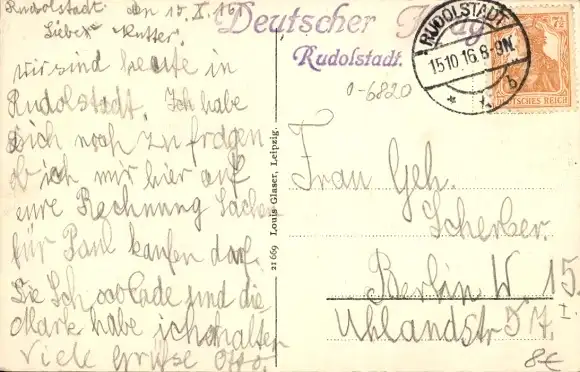 Rudolstadt den 15.X.16.
Liebe Mutter.
wir sind heute in
Rudolstadt. Ich habe
noch zu fragen
ob ich mir hier auf
eure Rechnung Sachen
für Paul kaufen darf.
Die Schocolade und die
Mark habe ich erhalten
Viele Grüße Otto.
Deutscher
Rudolstadt.
RUDOLSTADT
15.10.16.8-9N.
* b
7½
DEUTSCHES REICH
0-6820
21 669 Louis Glaser, Leipzig.
Frau Geh.
Scherber.
Berlin W. 15.
I.
Uhlandstr
8€